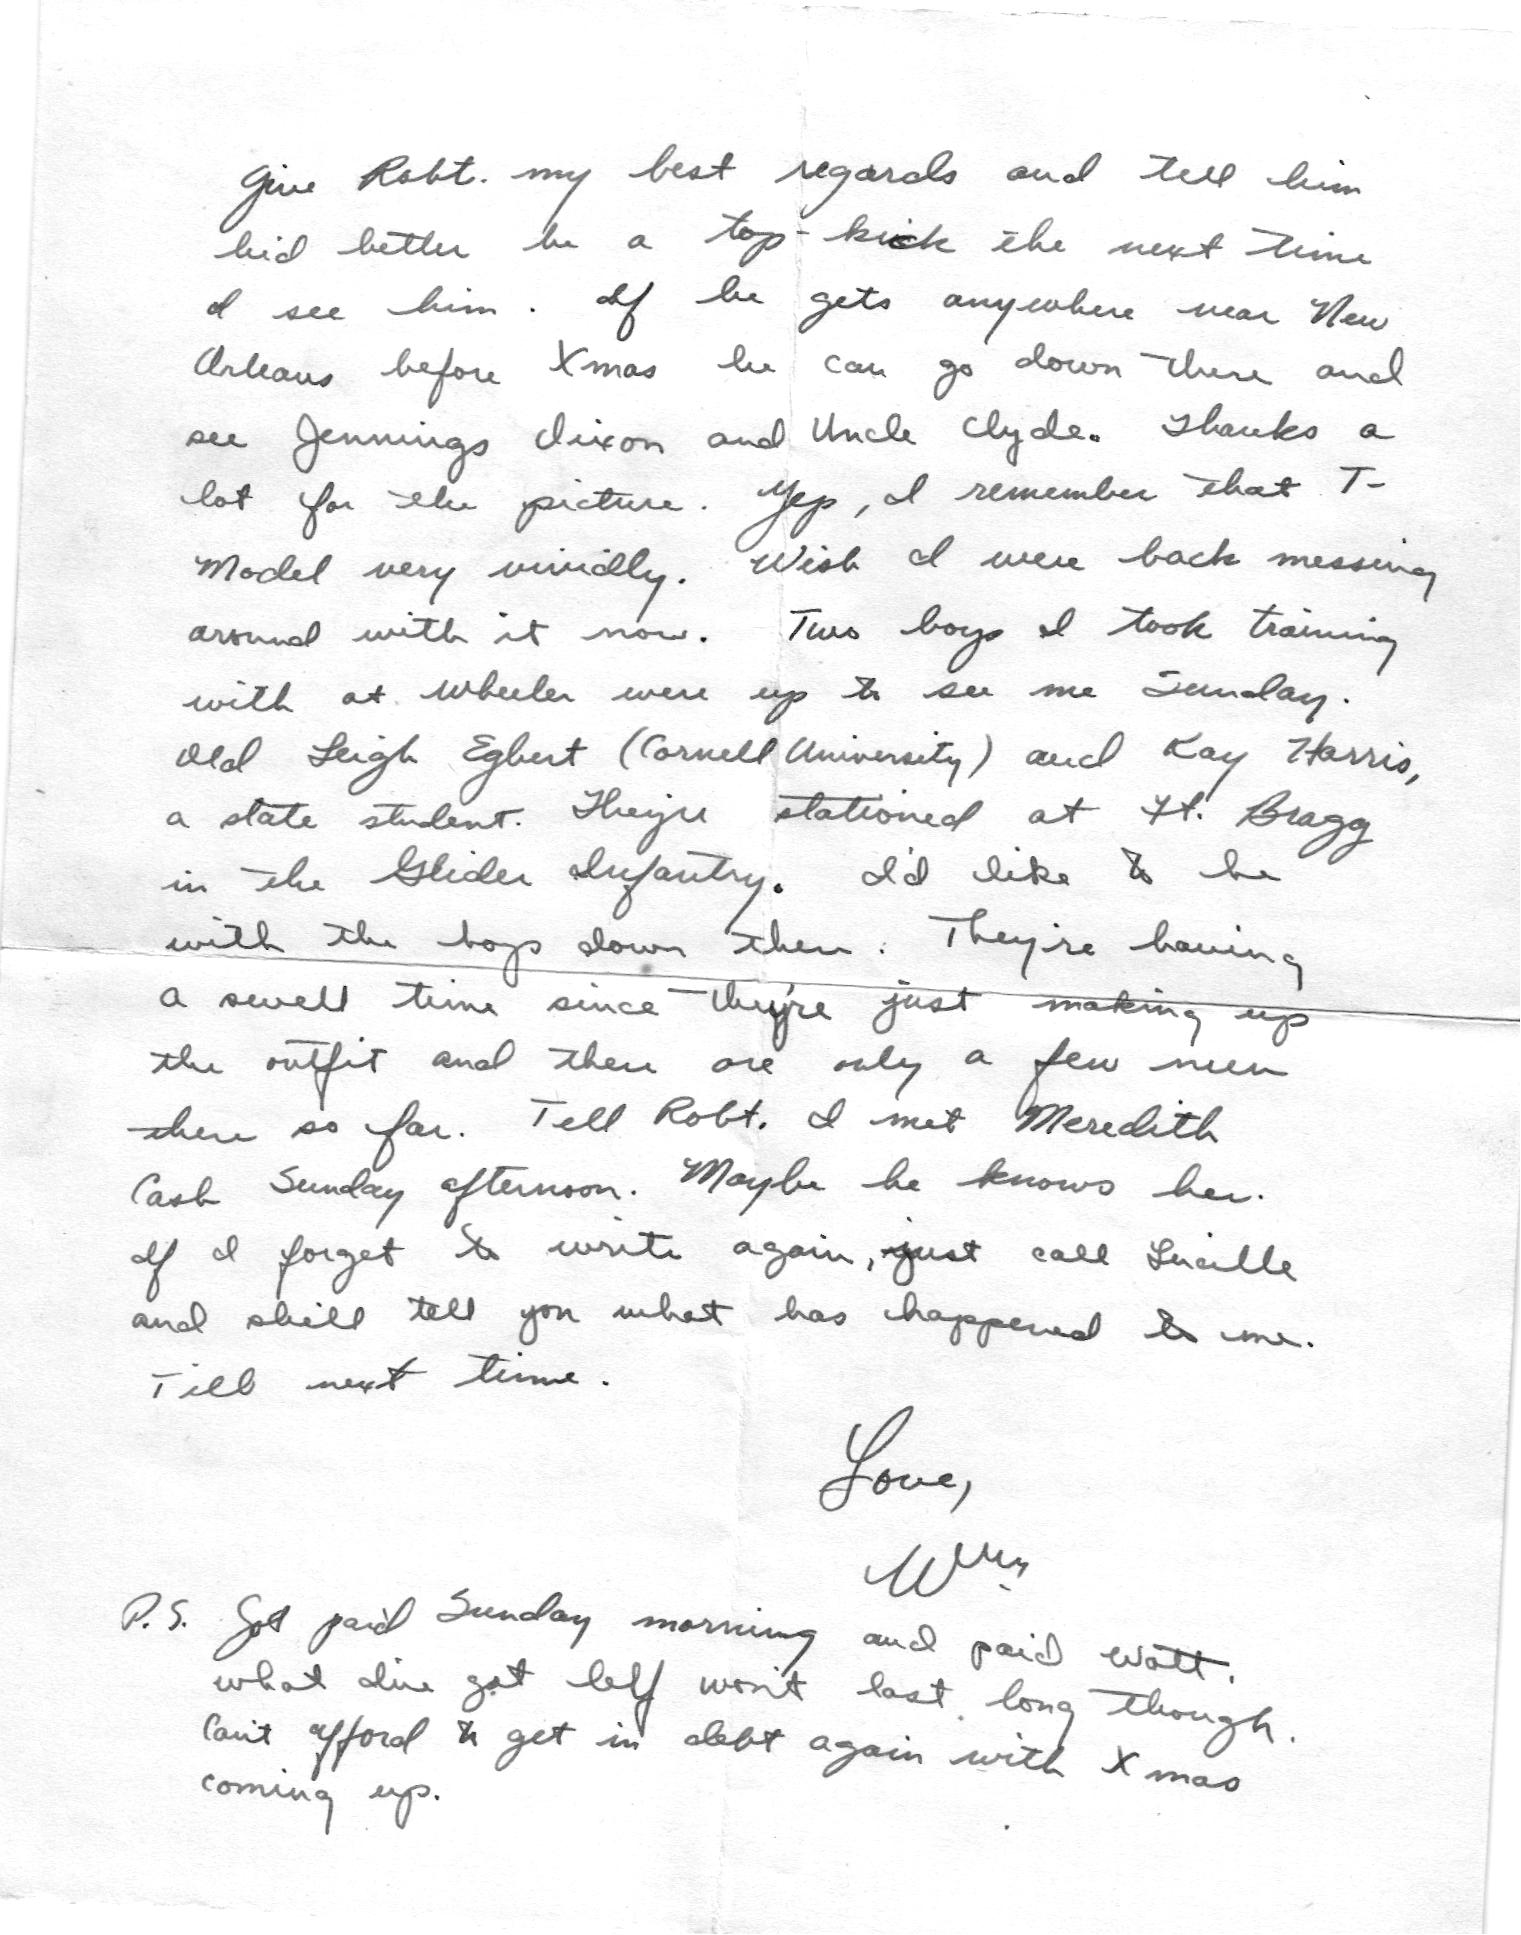 Give Robt. my best regards and tell him
he'd better be a top-kick the next time
I see him. If he gets anywhere near New
Orleans before Xmas he can go down there and
see Jennings Dixon and Uncle Clyde. Thanks a
lot for the picture. Yep, I remember that T-
Model very vividly. Wish I were back messing
around with it now. Two boys I took training
with at Wheeler were up to see me Sunday.
Old Leigh Egbert (Cornell University) and Kay Harris,
a State student. They're stationed at Ft. Bragg
in the Glider Infantry. I'd like to be
with the boys down there. They're having
a swell time since they're just making up
the outfit and there are only a few men
there so far. Tell Robt. I met Meredith
Cash Sunday afternoon. Maybe he knows her.
If I forget to write again, just call Lucille
and she'll tell you what has happened to me.
Till next time.
Love,
Wm.
P.S. Got paid Sunday morning and paid Watt.
What I've got left won't last long though.
Can't afford to get in debt again with Xmas
coming up.